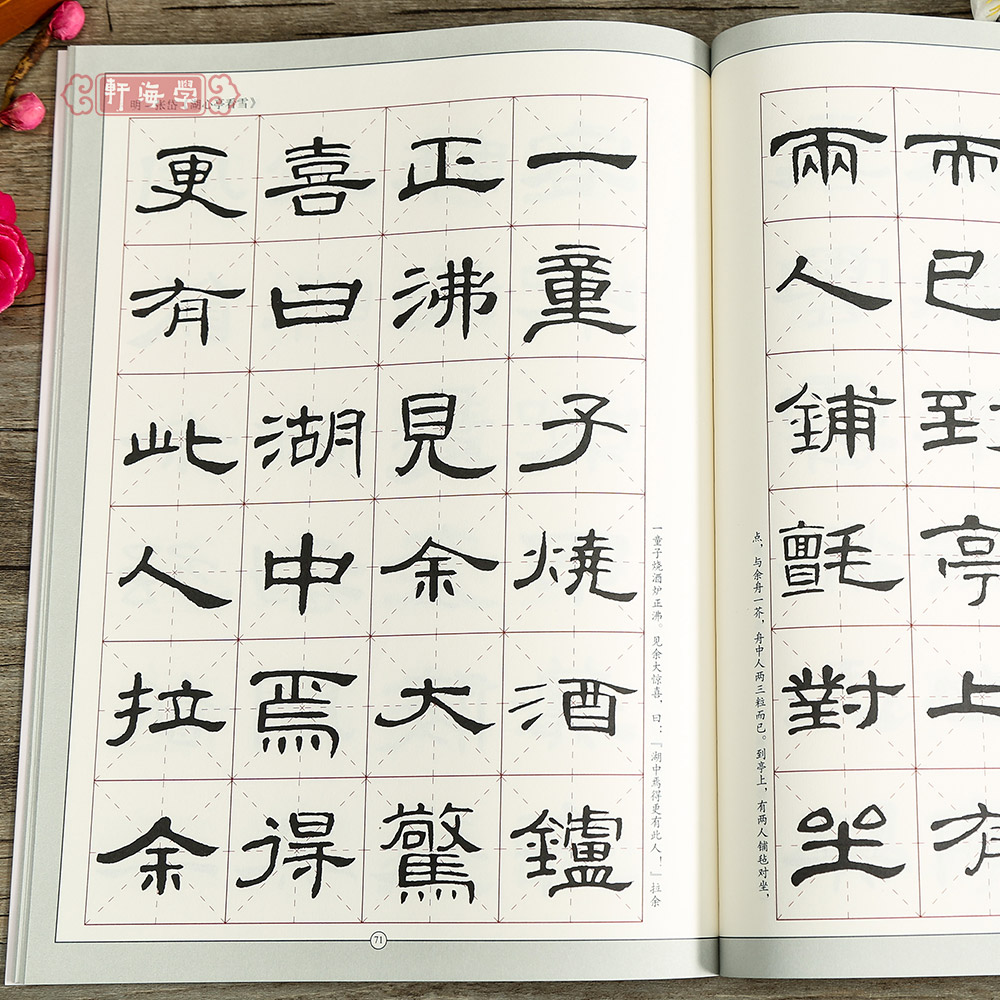 學海軒
明·张岱《湖心亭看雪》
而已到亭上有
兩人鋪氈對坐
点，与余舟一芥，舟中人两三粒而已。到亭上，有两人铺毡对坐，
一童子燒酒鑪
正沸見余大驚
喜曰湖中焉得
更有此人拉余
一童子烧酒炉正沸。见余大惊喜，曰：『湖中焉得更有此人！』拉余
71